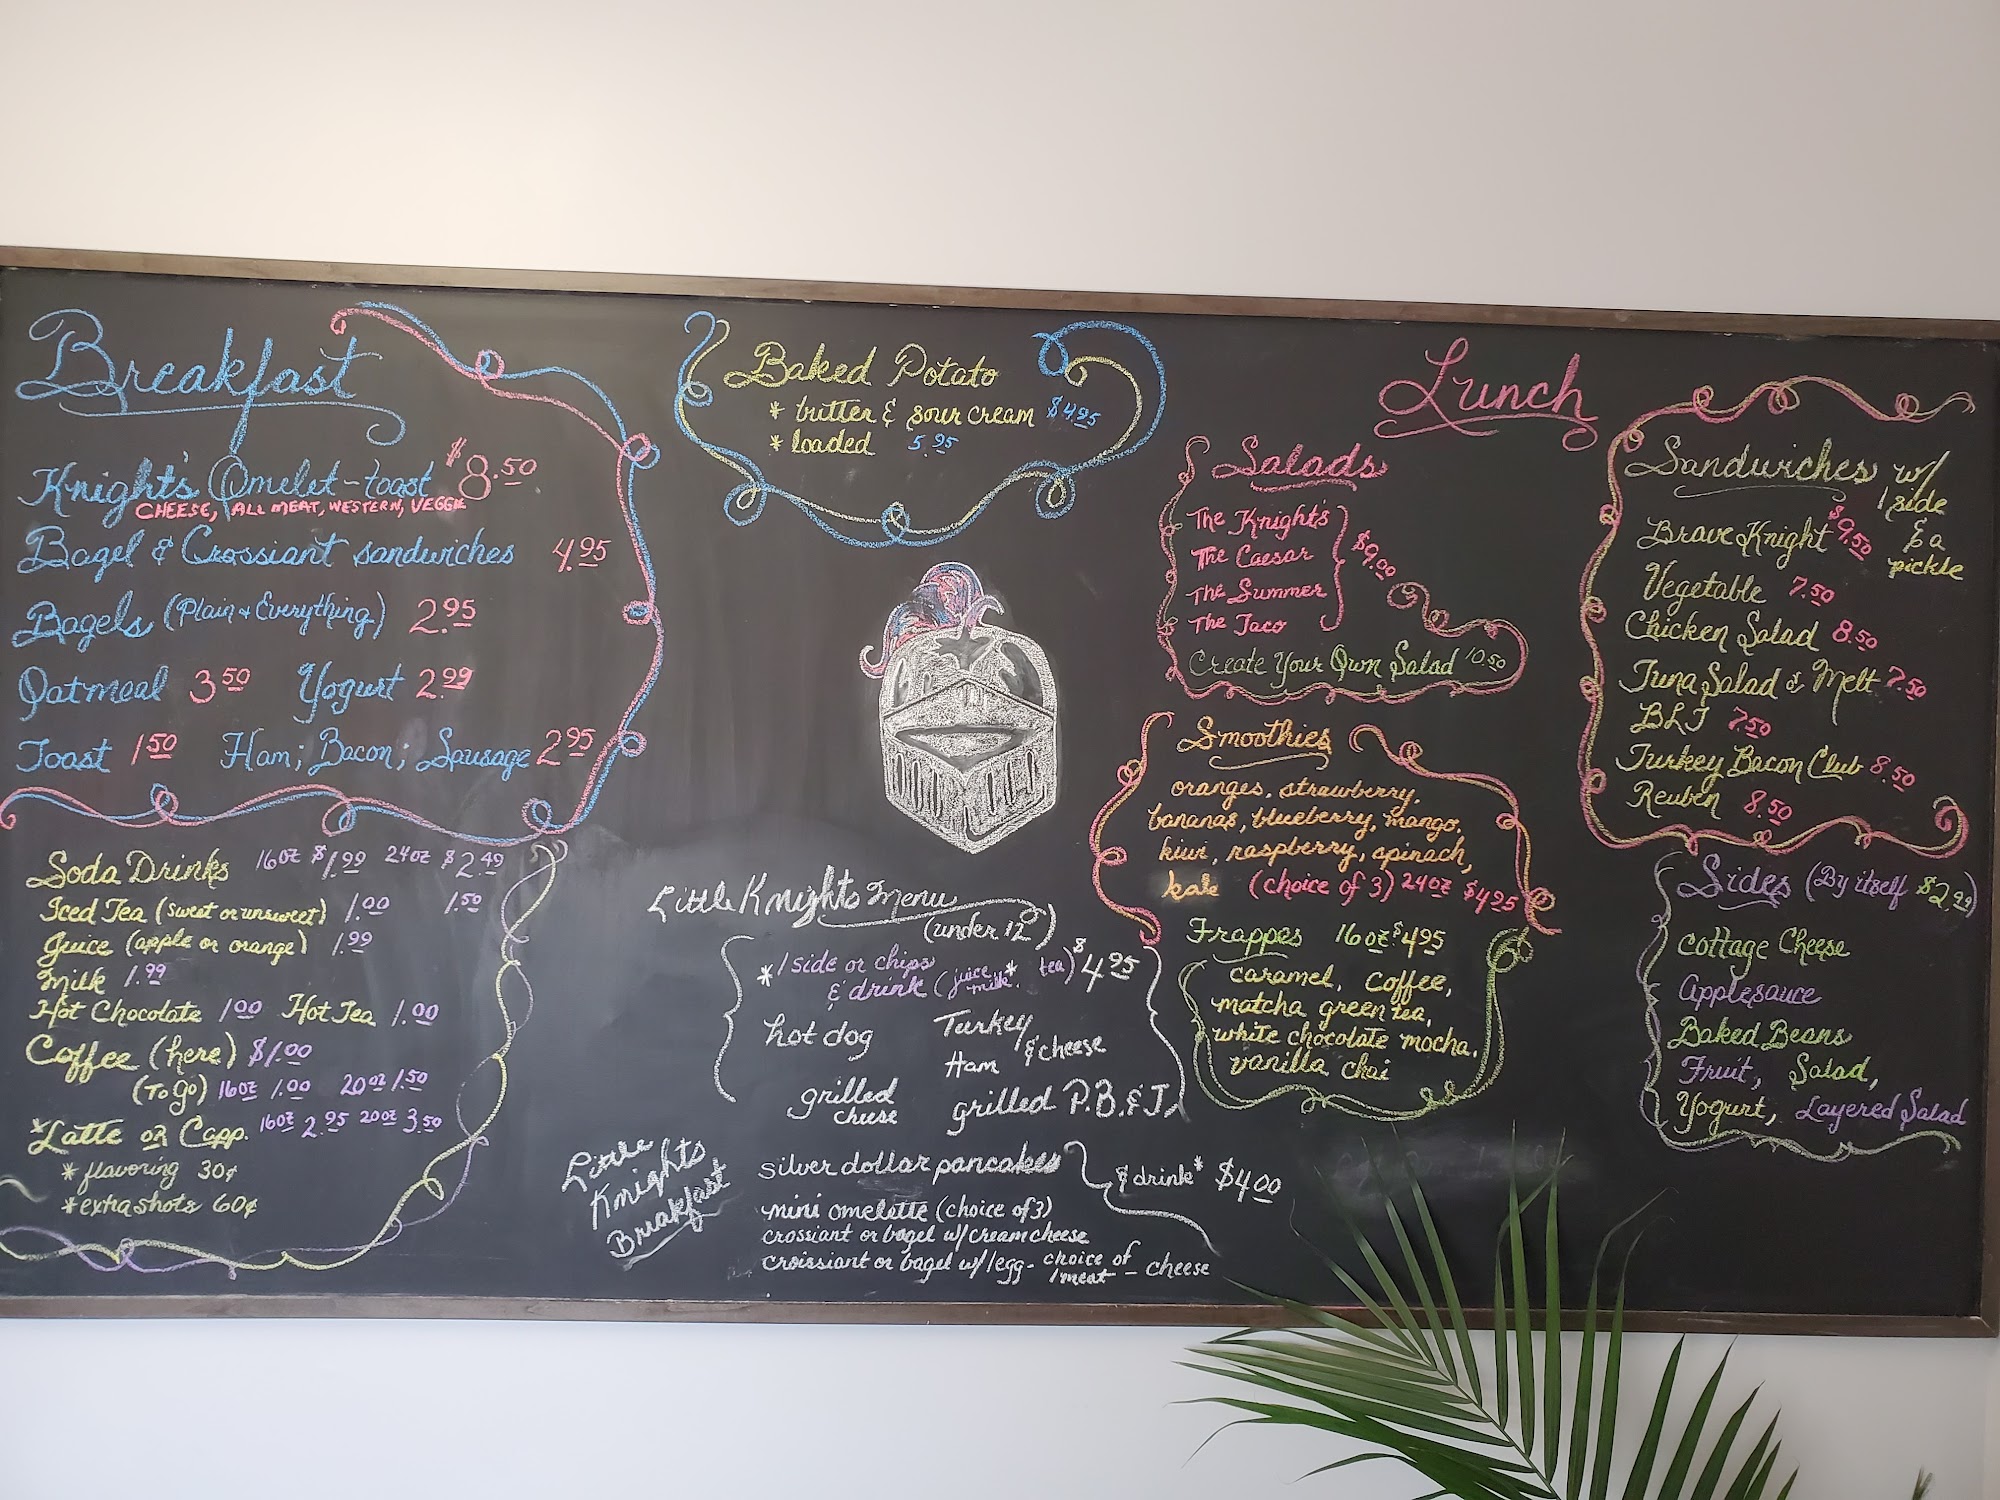 Breakfast
Knight's Omelet - toast $8.50
CHEESE, ALL MEAT, WESTERN, VEGGIE
Bagel & Crossiant sandwiches 4.95
Bagels (Plain + Everything) 2.95
Oatmeal 3.50 Yogurt 2.99
Toast 1.50 Ham; Bacon; Sausage 2.95
Soda Drinks 16oz $1.99 24oz $2.49
Iced Tea (sweet or unsweet) 1.00 1.50
Juice (apple or orange) 1.99
Milk 1.99
Hot Chocolate 1.00 Hot Tea 1.00
Coffee (here) $1.00
(To go) 16oz 1.00 20oz 1.50
*Latte or Capp. 16oz 2.95 20oz 3.50
* flavoring 30¢
* extra shots 60¢
Baked Potato
* butter & sour cream $4.95
* loaded 5.95
Little Knights Menu
(under 12)
* 1 side or chips
& drink (juice * tea) $4.95
milk.
hot dog
Turkey
Ham & cheese
grilled
cheese
grilled P.B. & J.
Little
Knights
Breakfast
silver dollar pancakes & drink* $4.00
mini omelette (choice of 3)
crossiant or bagel w/ cream cheese
croissiant or bagel w/ 1 egg - choice of
1 meat - cheese
Lunch
Salads
The Knight's
The Caesar
The Summer
The Taco
$9.00
Create Your Own Salad 10.50
Smoothies
oranges, strawberry,
bananas, blueberry, mango,
kiwi, raspberry, spinach,
kale (choice of 3) 24oz $4.95
Frappes 16oz $4.95
caramel, coffee,
matcha green tea,
white chocolate mocha,
vanilla chai
Sandwiches w/
1 side
& a
pickle
Brave Knight $9.50
Vegetable 7.50
Chicken Salad 8.50
Tuna Salad & Melt 7.50
BLT 7.50
Turkey Bacon Club 8.50
Reuben 8.50
Sides (By itself $2.99)
Cottage Cheese
Applesauce
Baked Beans
Fruit, Salad,
Yogurt, Layered Salad